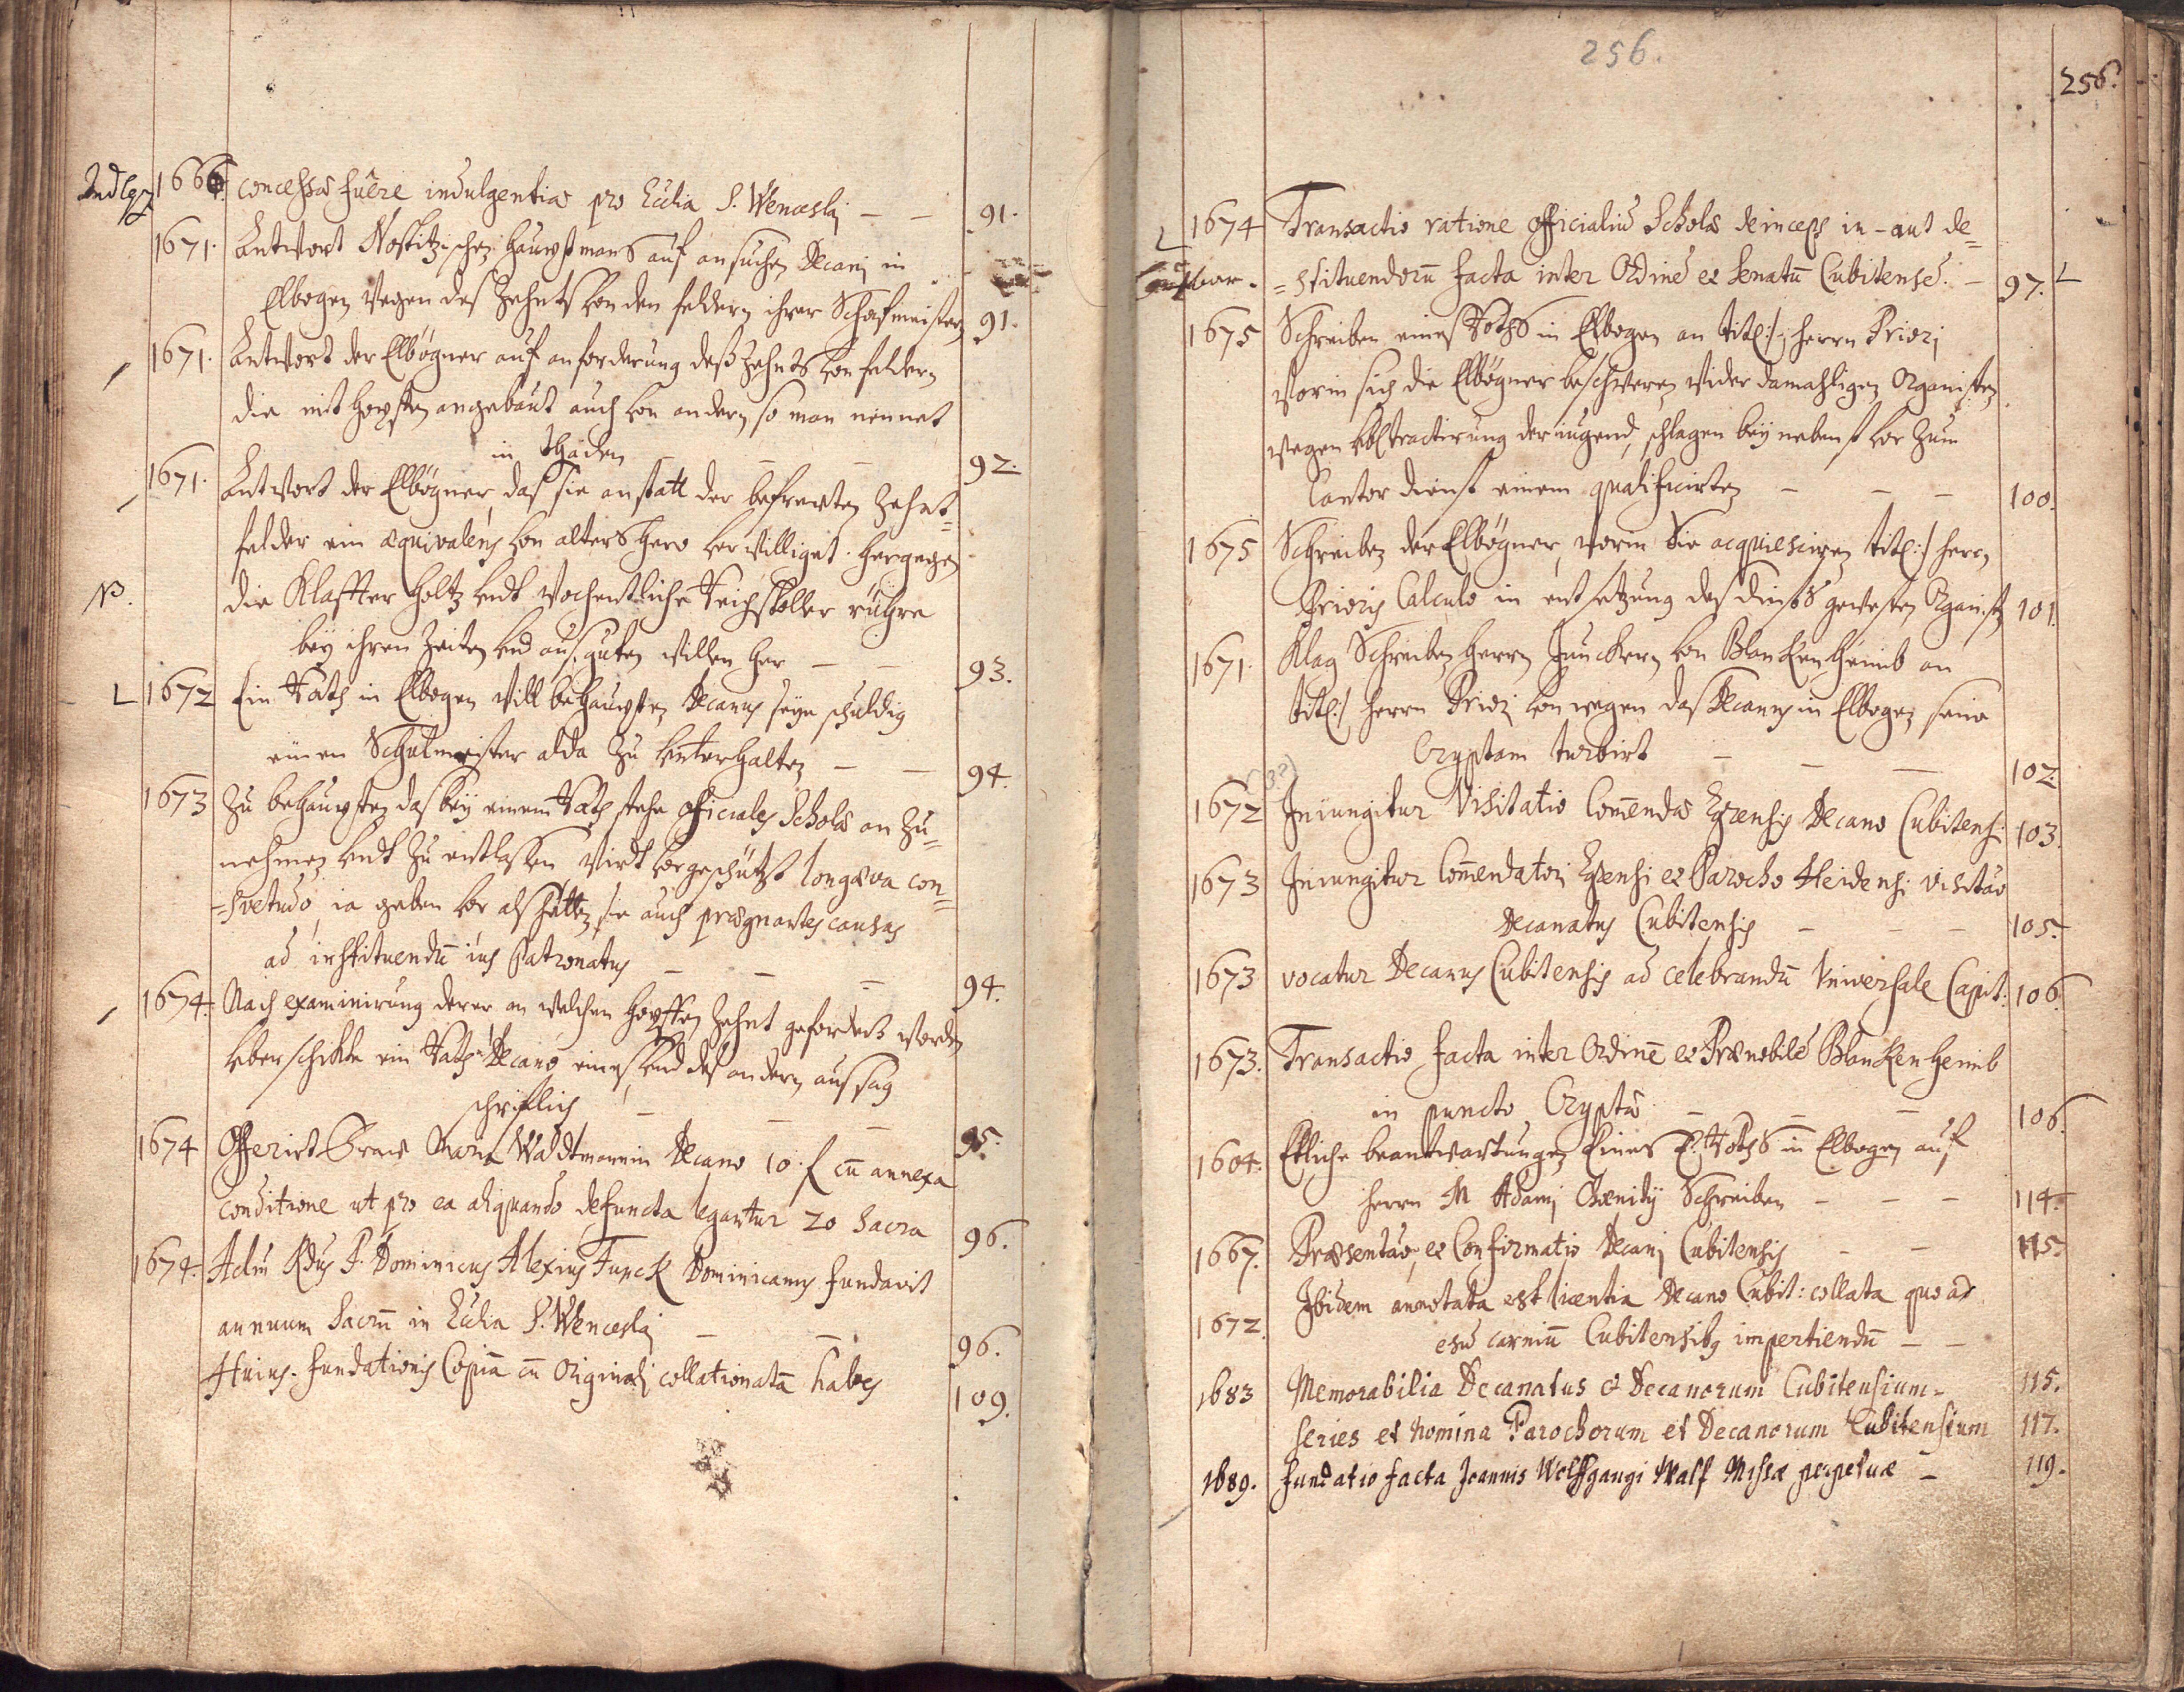 1666. concessæ fuêre indulgentiæ pro Ecclia S. Wenceslaj — — 91.
1671. Antwort Nostitzischen Hauptmans auf ansuchen Decanj in
Elbogen wegen des Zehnts von den feldern ihrer Schafmeister 91.
1671. Antwort der Elbögner auf anforderung deß Zehnts von feldern
die mit hopffen angebaut auch von andern so man nennet
in 92.
1671. Antwort der Elbögner, daß sie anstatt der befreyten Zehnt=
felder ein æquivalens von alters hero verwilliget. Hergegen
NB. die Klaffter holtz undt wochentliche rühre
bey ihren Zeiten und auß guten willen her — — 93.
L 1672 Ein Rath in Elbogen will behaupten Decanus seye schuldig
einen Schulmeister alda zu unterhalten — — 94.
1673 Zu behaupten das bey einem Rath stehe officiales Scholæ an zu=
nehmen undt zu entlassen wirdt vorgeschützt longæva con=
=svetudo, ia geben vor als hetten sie auch prægnantes causas
ad instituendū ius Patronatus — — — 94.
1674. Nach examinirung derer an welchen hopffen Zehnt gefordert worden
überschickte ein Rath Decano eines und deß andern aussag
schriftlich — — — 95.
1674 Offerirt Fraw Waldtmannin Decano 10. f cū annexa
conditione ut pro ea aliquando defuncta legantur 20 Sacra 96.
1674. Adm̄ Rdus P. Dominicus Alexius Funck Dominicanus fundavit
annuum Sacrū in Ecclia S. Wenceslaj — — 96.
Huius fundationis Copiā cū Originalj collationatā habes 109.
256.
256.
L 1674 Transactio ratione officialiū Scholæ deinceps in- aut de=
=stituendorū facta inter Ordinē et Senatū Cubitensē. — 97. L
1675 Schreiben eines Raths in Elbogen an tit(:) Herrn Priorj
worin sich die Elbögner beschweren wider damahligen Organisten
wegen ybl tractirung der iugend, schlagen bey nebenst vor zum
Cantor dienst einem qualificirten — — — 100.
1675 Schreiben der Elbögner, worin Sie acquiesciren tit(:) herrn
Prioris Calculo in entsetzung des dinsts gewesten Organist 101.
1671. Klag Schreiben Herrn Junckern von Blanckenheimb an
tit(:) Herrn Priorj von wegen daß Decanus in Elbogen seine
Cryptam turbirt — — — 102.
1672 Iniungitur Visitatio Com̄endæ Egrensis Decano Cubitensi 103.
1673 Iniungitur Com̄endatorj Egrensi et Parocho Heidensi visitatio
Decanatus Cubitensis — — — 105.
1673 vocatur Decanus Cubitensis ad celebrandū Universale Capit: 106
1673. Transactio facta inter Ordinē et Prænobilē Blanckenheimb
in puncto Cryptæ — — — 106.
1604. Etliche beantwortungen Eines E. Raths in Elbogen auf
herrn M Adamj Schreiben — — — 114.
1667. Præsentatio, et Confirmatio Decanj Cubitensis — — 115.
1672. Ibidem annotata est licentia Decano Cubit: collata quo ad
esū carniū Cubitensibus impertiendū — —
1683 Memorabilia Decanatus et Decanorum Cubitensium - 115.
Series et nomina Parochorum et Decanorum Cubitensium 117.
1689. Fundatio facta Joannis Wolffgangi Walf Missæ perpetuæ — 119.